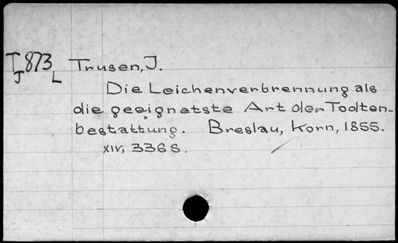 T873 Trusen, J.
J L
Die Leichenverbrennung als
die geeignetste Art der Todten-
bestattung. Breslau, Korn, 1855.
XIV, 336 S.